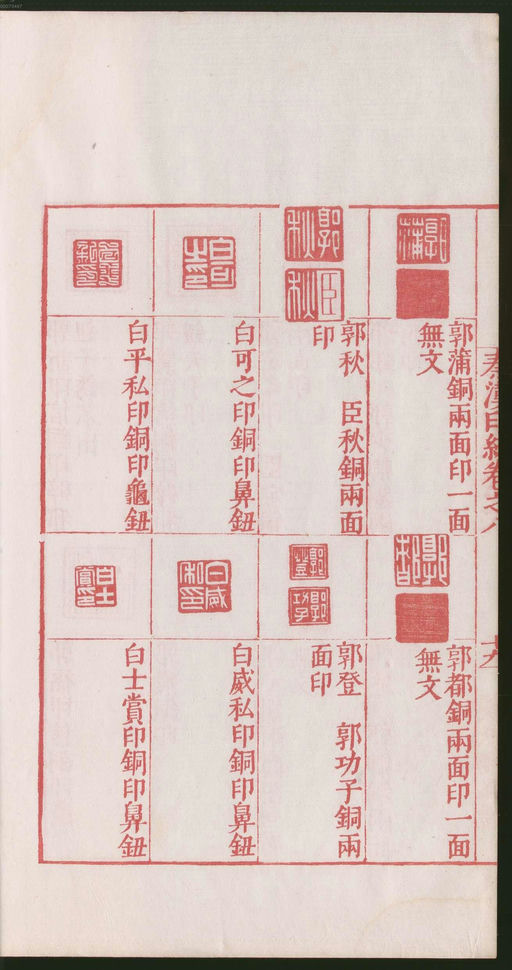 秦漢印統卷之八
十九
郭蒲銅兩面印一面
無文
郭秋 臣秋銅兩面
印
白可之印銅印鼻鈕
白平私印銅印龜鈕
郭都銅兩面印一面
無文
郭登 郭功子銅兩
面印
白威私印銅印鼻鈕
白士賞印銅印鼻鈕